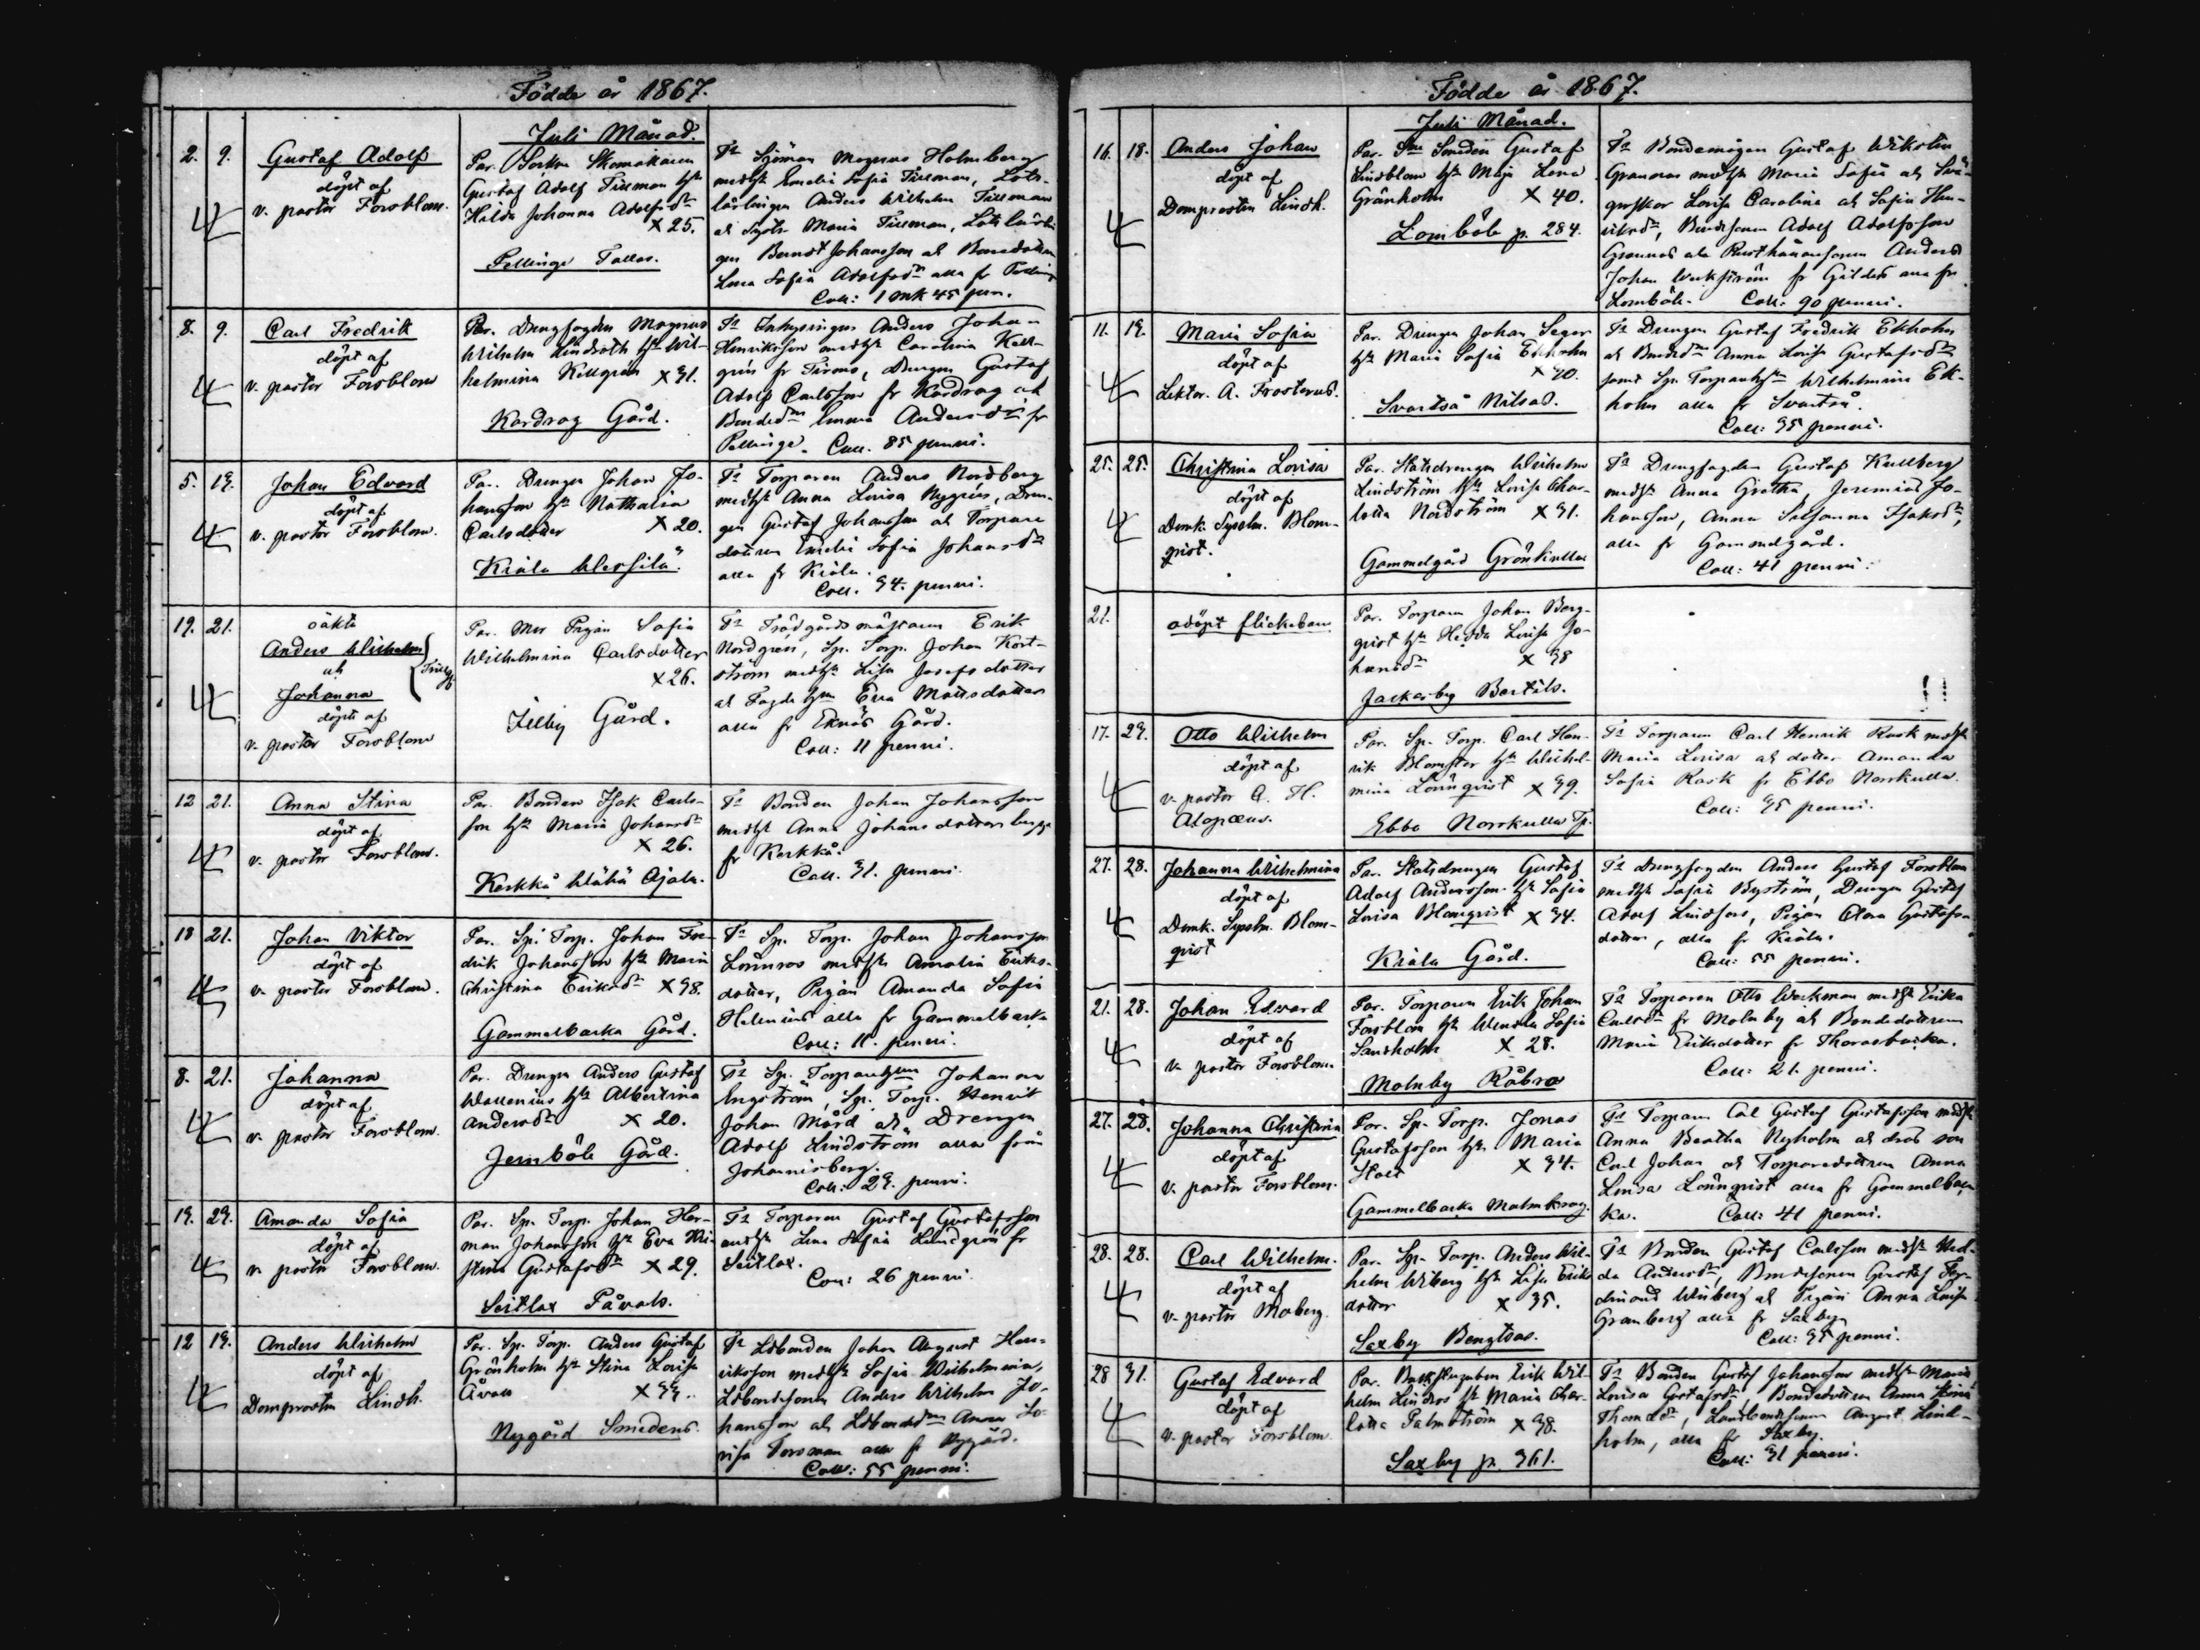 Födde år 1867.
Juli Månad.
2. 9. Gustaf Adolf
döpt af
v. pastor Forsblom.
Par. Skomakaren
Gustaf Adolf Tillman hst
Hilda Johanna Adolfsdr
x 25.
Pellinge Tallas.
Ts Sjöman Magnus Holmberg
medhst Emelia Sofia Tillman, Lots-
lärlingen Anders Wilhelm Tillman
och Maria Tillman,
gen Berndt Johansson och
Lena Sofia Adolfsdr alla fr Pellinge
Coll: 1 mk 45 pen.
8. 9. Carl Fredrik
döpt af
v. pastor Forsblom
Par. Drengfogden Magnus
Wilhelm Lindroth hst Wil-
helmina Kellgren x 31.
Kardrag Gård.
Ts Inhysingen Anders Johan
Henriksson medhst Carolina Kell-
gren fr Tirmo, Drengen Gustaf
Adolf Carlsson fr Kardrag och
Bondedr Emma Andersdr fr
Pellinge. Coll. 85 penni.
5. 14. Johan Edvard
döpt af
v. pastor Forsblom.
Par. Drengen Johan Jo-
hansson hst Nathalia
Carlsdotter x 20.
Kiala
Ts Torparen Anders Nordberg
medhst Anna Lovisa Nygren, Dren-
gen Gustaf Johansson och Torpare
dottren Emelie Sofia Johansdr
alla fr Kiala.
Coll. 34. penni.
19. 21. oäkta
Anders Wilhelm
och
Johanna
döpte af
v. pastor Forsblom
Par. Pigan Sofia
Wilhelmina Carlsdotter
x 26.
Ilby Gård.
Ts Trädgårdsmästaren Erik
Nordgren, Sp. Torp. Johan Kort-
ström medhst Lisa Josefsdotter
och Eva Mattsdotter
alla fr Eknäs Gård.
Coll: 11 penni.
12 21. Anna Stina
döpt af
v. pastor Forsblom.
Par. Bonden Isak Carls-
son hst Maria Johansdr
x 26.
Kerkkå Ajala.
Ts Bonden Johan Johansson
medhst Anna Johansdotter begge
fr Kerkkå.
Coll. 31. penni.
18 21. Johan Viktor
döpt af
v. pastor Forsblom.
Par. Sp. Torp. Johan Fre-
drik Johansson hst Maria
Christina Eriksdr x 38.
Gammelbacka Gård.
Ts Sp. Torp. Johan Johansson
Lönnroos medhst Amalia Eriks-
dotter, Pigan Amanda Sofia
Helenius alla fr Gammelbacka
Coll: 11. penni.
8. 21. Johanna
döpt af
v. pastor Forsblom.
Par. Drengen Anders Gustaf
Wallenius hst Albertina
Andersdr x 20.
Jernböle Gård.
Ts Sp. Johanna
Engström, Sp. Torp. Henrik
Johan Mård och Drengen
Adolf Lindström alla från
Johannisberg.
Coll: 24. penni.
14. 24. Amanda Sofia
döpt af
v. pastor Forsblom.
Par. Sp. Torp. Johan Her-
man Johansson hst Eva Kri-
stina Gustafsdr x 29.
Seitlax Påvals.
Ts Torparen Gustaf Gustafsson
medhst Lena Sofia Lindgren fr
Seitlax.
Coll: 26 penni.
12 14. Anders Wilhelm
döpt af
Domprosten Lindh.
Par. Sp. Torp. Anders Gustaf
Grönholm hst Stina Lovisa
x 34.
Nygård Smedens.
Ts Ldbonden Johan August Hen-
riksson medhst Sofia Wilhelmina,
Ldbondesonen Anders Wilhelm Jo-
hansson och Anna Lo-
visa Forsman alla fr Nygård.
Coll: 55 penni.
Födde år 1867.
Juli Månad.
16. 18. Anders Johan
döpt af
Domprosten Lindh.
Par. Smeden Gustaf
Lindblom hst Maja Lena
Gränholm x 40.
Lomböle p. 284.
Ts Bondemågen Gustaf Wikstén
Grannas medhst Maria Sofia och
Lovisa Carolina och Sofia Hen-
riksdr, Bondesonen Adolf Adolfsson
Grannas och Rusthållaresonen Anders
Johan Weckström fr Gäddrö alla fr
Lomböle. Coll. 90 penni.
11. 14. Maria Sofia
döpt af
Lektor. A. Frosterus.
Par. Drengen Johan Seger
hst Maria Sofia Ekholm
x 40.
Svartså Nilsas.
Ts Drengen Gustaf Fredrik Ekholm
och Bondedr Anna Lovisa Gustafsdr
samt Sp. Wilhelmina Ek-
holm alla fr Svartså.
Coll: 35 penni.
25. 25. Christina Lovisa
döpt af
Domk. Syslm. Blom-
qvist.
Par. Statdrengen Wilhelm
Lindström hst Lovisa Char-
lotta Nordström x 31.
Gammelgård Grönkulla
Ts Drengfogden Gustaf Kullberg
medhst Anna Gretha, Jeremias Jo-
hansson, Anna Susanna Isaksdr,
alla fr Gammelgård.
Coll: 41 penni.
21. odöpt flickebarn
Par. Torparen Johan Berg-
qvist hst Hedda Lovisa Jo-
hansdr x 38
Jackarby Bertils.
17. 24. Otto Wilhelm
döpt af
v. pastor A. H.
Alopæus.
Par. Sp. Torp. Carl Hen-
rik Blomster hst Wilhel-
mina Lönnqvist x 39.
Ebbo Norrkulla Tp.
Ts Torparen Carl Henrik Rask medhst
Maria Lovisa och dotter Amanda
Sofia Rask fr Ebbo Norrkulla.
Coll: 45 penni.
27. 28. Johanna Wilhelmina
döpt af
Domk. Syslm. Blom-
qvist
Par. Statdrengen Gustaf
Adolf Andersson hst Sofia
Lovisa Blomqvist x 34.
Kiala Gård.
Ts Drengfogden Anders Gustaf Forsblom
medhst Sofia Byström, Drengen Gustaf
Adolf Lindfors, Pigan Clara Gustafs-
dotter, alla fr Kiala.
Coll: 55 penni.
21. 28. Johan Edvard
döpt af
v. pastor Forsblom.
Par. Torparen Erik Johan
Forsblom hst Wendla Sofia
Sandholm x 28.
Molnby Råbro
Ts Torparen Otto Weckman medhst Erika
Carlsdr fr Molnby och Bondedottren
Maria Eriksdotter fr Thorasbacka.
Coll: 21. penni.
27. 28. Johanna Christina
döpt af
v. pastor Forsblom.
Par. Sp. Torp. Jonas
Gustafsson hst Maria
x 34.
Gammelbacka Malmkrog.
Ts Torparen Carl Gustaf Gustafsson medhst
Anna Beatha Nyholm och dras son
Carl Johan och Torparedottren Anna
Lovisa Lönnqvist alla fr Gammelbac-
ka. Coll: 41 penni.
28. 28. Carl Wilhelm.
döpt af
v. pastor Moberg.
Par. Sp. Torp. Anders Wil-
helm Wiberg hst Lisa Eriks
dotter x 35.
Saxby Bengtsas.
Ts Bonden Gustaf Carlsson medhst Hed-
da Andersdr, Bondesonen Gustaf Fer-
dinand Winberg och Pigan Anna Lovisa
Granberg alla fr Saxby
Coll: 35 penni.
28 31. Gustaf Edvard
döpt af
v. pastor Forsblom.
Par. Erik Wil-
helm Lindros hst Maria Char-
lotta Palmström x 38.
Saxby p. 361.
Ts Bonden Gustaf Johansson medhst Maria
Lovisa Gustafsdr, Bondedottren Anna Stina
Thomasdr, Landbondesonen August Lind-
holm, alla fr Saxby.
Coll: 31 penni.